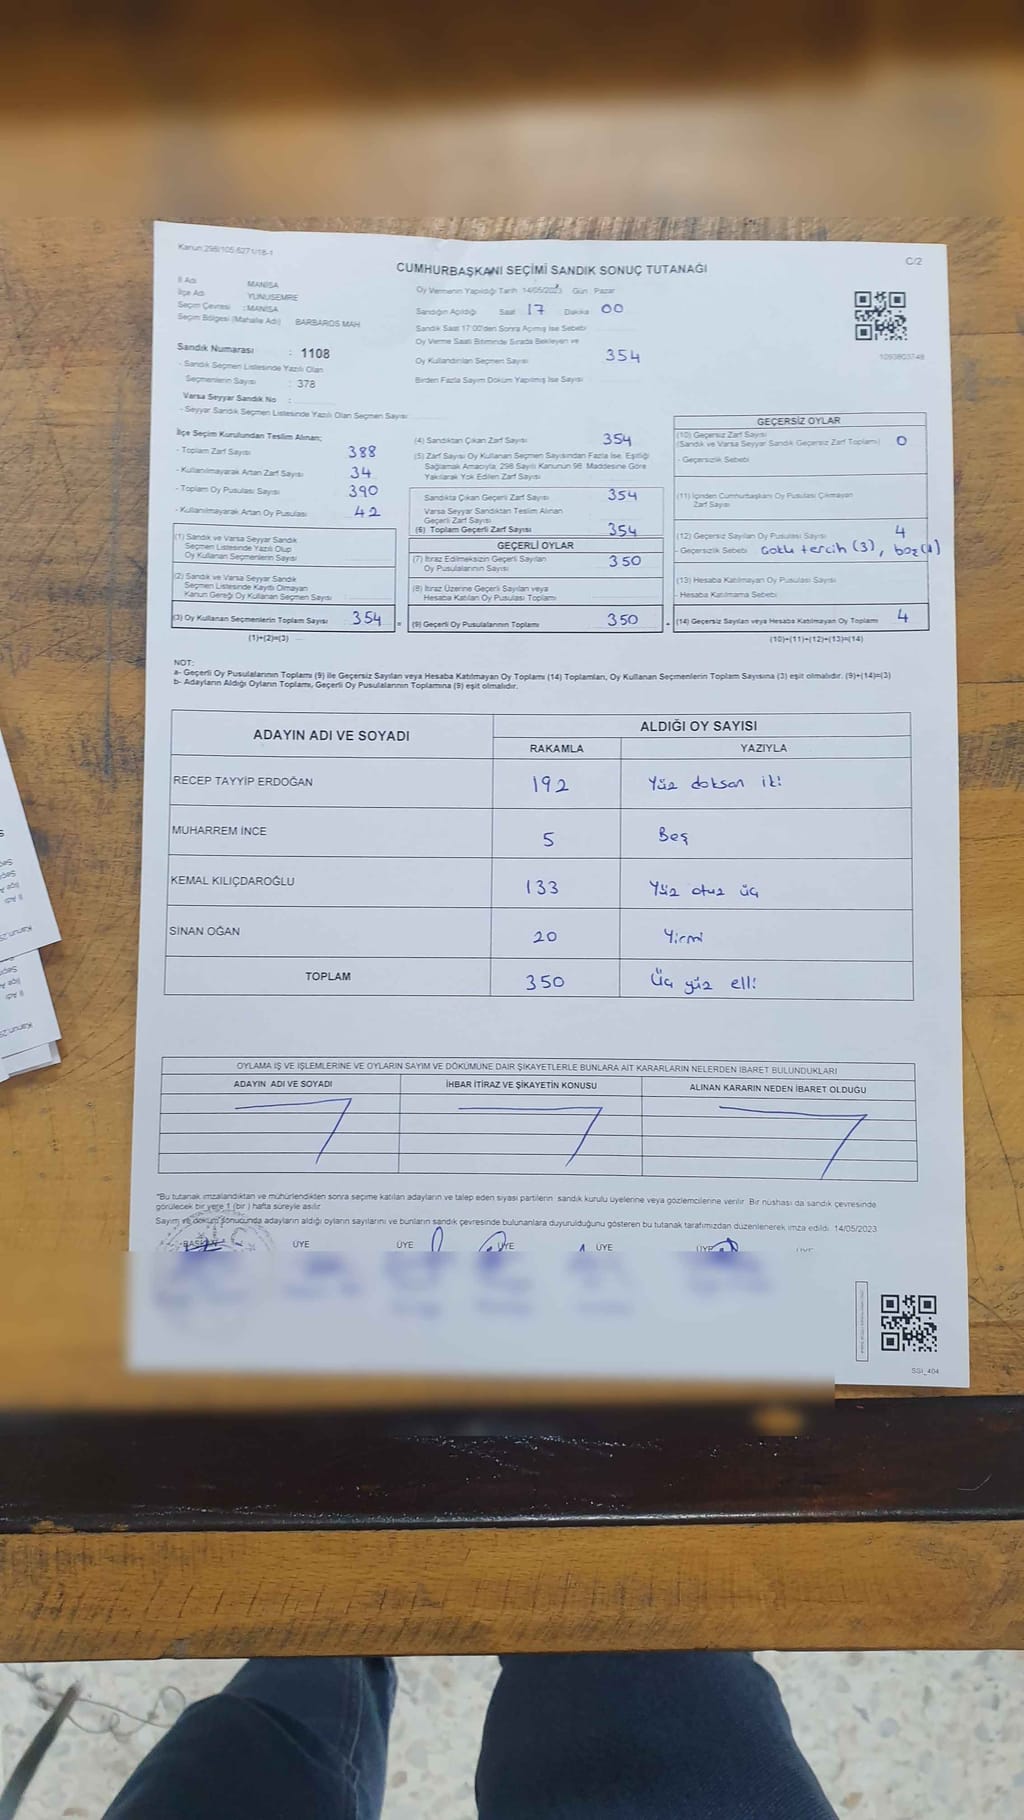 Kanun:298/105 6271/18-1
C/2
CUMHURBAŞKANI SEÇİMİ SANDIK SONUÇ TUTANAĞI
İl Adı MANİSA
İlçe Adı YUNUSEMRE
Seçim Çevresi : MANİSA
Seçim Bölgesi (Mahalle Adı) BARBAROS MAH
Sandık Numarası : 1108
- Sandık Seçmen Listesinde Yazılı Olan
Seçmenlerin Sayısı : 378
Varsa Seyyar Sandık No :
- Seyyar Sandık Seçmen Listesinde Yazılı Olan Seçmen Sayısı
Oy Vermenin Yapıldığı Tarih 14/05/2023 Gün : Pazar
Sandığın Açıldığı Saat 17 Dakika 00
Sandık Saat 17:00'den Sonra Açılmış İse Sebebi
Oy Verme Saati Bitiminde Sırada Bekleyen ve
Oy Kullandırılan Seçmen Sayısı 354
Birden Fazla Sayım Döküm Yapılmış İse Sayısı
1093803748
İlçe Seçim Kurulundan Teslim Alınan;
- Toplam Zarf Sayısı 388
- Kullanılmayarak Artan Zarf Sayısı 34
- Toplam Oy Pusulası Sayısı 390
- Kullanılmayarak Artan Oy Pusulası 42
(1) Sandık ve Varsa Seyyar Sandık
Seçmen Listesinde Yazılı Olup
Oy Kullanan Seçmenlerin Sayısı
(2) Sandık ve Varsa Seyyar Sandık
Seçmen Listesinde Kayıtlı Olmayan
Kanun Gereği Oy Kullanan Seçmen Sayısı
(3) Oy Kullanan Seçmenlerin Toplam Sayısı 354
(1)+(2)=(3)
(4) Sandıktan Çıkan Zarf Sayısı 354
(5) Zarf Sayısı Oy Kullanan Seçmen Sayısından Fazla İse, Eşitliği
Sağlamak Amacıyla, 298 Sayılı Kanunun 98. Maddesine Göre
Yakılarak Yok Edilen Zarf Sayısı
Sandıkta Çıkan Geçerli Zarf Sayısı 354
Varsa Seyyar Sandıktan Teslim Alınan
Geçerli Zarf Sayısı
(6) Toplam Geçerli Zarf Sayısı 354
GEÇERLİ OYLAR
(7) İtiraz Edilmeksizin Geçerli Sayılan
Oy Pusulalarının Sayısı 350
(8) İtiraz Üzerine Geçerli Sayılan veya
Hesaba Katılan Oy Pusulası Toplamı
= (9) Geçerli Oy Pusulalarının Toplamı 350
GEÇERSİZ OYLAR
(10) Geçersiz Zarf Sayısı
(Sandık ve Varsa Seyyar Sandık Geçersiz Zarf Toplamı) 0
- Geçersizlik Sebebi
(11) İçinden Cumhurbaşkanı Oy Pusulası Çıkmayan
Zarf Sayısı
(12) Geçersiz Sayılan Oy Pusulası Sayısı 4
- Geçersizlik Sebebi Çoklu tercih (3), boş (1)
(13) Hesaba Katılmayan Oy Pusulası Sayısı
- Hesaba Katılmama Sebebi
+ (14) Geçersiz Sayılan veya Hesaba Katılmayan Oy Toplamı 4
(10)+(11)+(12)+(13)=(14)
NOT:
a- Geçerli Oy Pusulalarının Toplamı (9) İle Geçersiz Sayılan veya Hesaba Katılmayan Oy Toplamı (14) Toplamları, Oy Kullanan Seçmenlerin Toplam Sayısına (3) eşit olmalıdır. (9)+(14)=(3)
b- Adayların Aldığı Oyların Toplamı, Geçerli Oy Pusulalarının Toplamına (9) eşit olmalıdır.
ADAYIN ADI VE SOYADI ALDIĞI OY SAYISI
RAKAMLA YAZIYLA
RECEP TAYYİP ERDOĞAN 192 Yüz doksan iki
MUHARREM İNCE 5 Beş
KEMAL KILIÇDAROĞLU 133 Yüz otuz üç
SİNAN OĞAN 20 Yirmi
TOPLAM 350 Üç yüz elli
OYLAMA İŞ VE İŞLEMLERİNE VE OYLARIN SAYIM VE DÖKÜMÜNE DAİR ŞİKAYETLERLE BUNLARA AİT KARARLARIN NELERDEN İBARET BULUNDUKLARI
ADAYIN ADI VE SOYADI İHBAR İTİRAZ VE ŞİKAYETİN KONUSU ALINAN KARARIN NEDEN İBARET OLDUĞU
*Bu tutanak imzalandıktan ve mühürlendikten sonra seçime katılan adayların ve talep eden siyasi partilerin sandık kurulu üyelerine veya gözlemcilerine verilir. Bir nüshası da sandık çevresinde
görülecek bir yere 1 (bir ) hafta süreyle asılır.
Sayım ve döküm sonucunda adayların aldığı oyların sayılarını ve bunların sandık çevresinde bulunanlara duyurulduğunu gösteren bu tutanak tarafımızdan düzenlenerek imza edildi. 14/05/2023
BAŞKAN ÜYE ÜYE ÜYE ÜYE ÜYE ÜYE
SSI_404